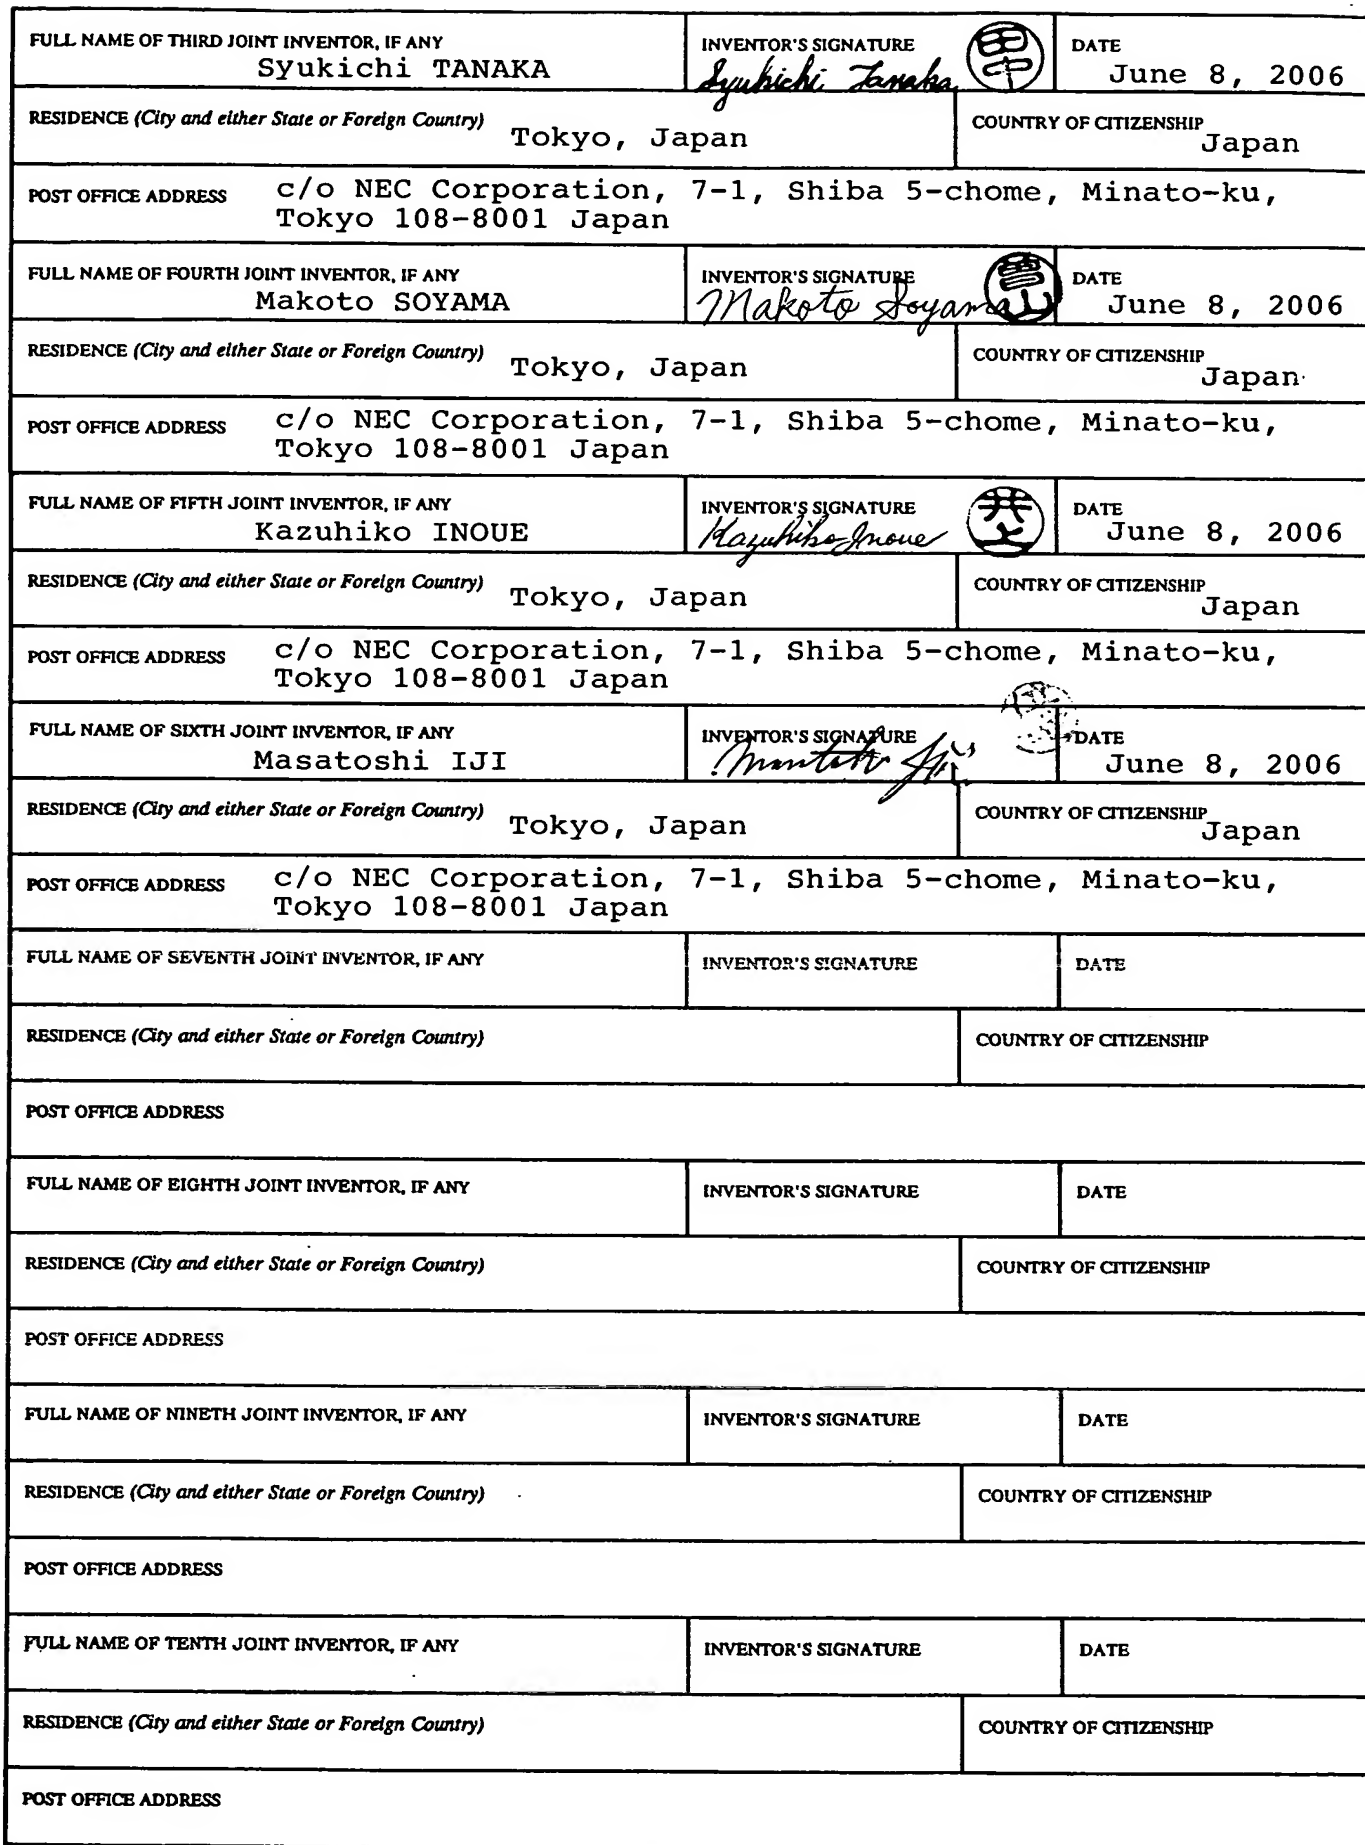 FULL NAME OF THIRD JOINT INVENTOR, IF ANY
Syukichi TANAKA
INVENTOR'S SIGNATURE
Syukichi Tanaka
田中
DATE
June 8, 2006
RESIDENCE (City and either State or Foreign Country)
Tokyo, Japan
COUNTRY OF CITIZENSHIP
Japan
POST OFFICE ADDRESS
c/o NEC Corporation, 7-1, Shiba 5-chome, Minato-ku,
Tokyo 108-8001 Japan
FULL NAME OF FOURTH JOINT INVENTOR, IF ANY
Makoto SOYAMA
INVENTOR'S SIGNATURE
Makoto Soyama
曽山
DATE
June 8, 2006
RESIDENCE (City and either State or Foreign Country)
Tokyo, Japan
COUNTRY OF CITIZENSHIP
Japan
POST OFFICE ADDRESS
c/o NEC Corporation, 7-1, Shiba 5-chome, Minato-ku,
Tokyo 108-8001 Japan
FULL NAME OF FIFTH JOINT INVENTOR, IF ANY
Kazuhiko INOUE
INVENTOR'S SIGNATURE
Kazuhiko Inoue
井上
DATE
June 8, 2006
RESIDENCE (City and either State or Foreign Country)
Tokyo, Japan
COUNTRY OF CITIZENSHIP
Japan
POST OFFICE ADDRESS
c/o NEC Corporation, 7-1, Shiba 5-chome, Minato-ku,
Tokyo 108-8001 Japan
FULL NAME OF SIXTH JOINT INVENTOR, IF ANY
Masatoshi IJI
INVENTOR'S SIGNATURE
DATE
June 8, 2006
RESIDENCE (City and either State or Foreign Country)
Tokyo, Japan
COUNTRY OF CITIZENSHIP
Japan
POST OFFICE ADDRESS
c/o NEC Corporation, 7-1, Shiba 5-chome, Minato-ku,
Tokyo 108-8001 Japan
FULL NAME OF SEVENTH JOINT INVENTOR, IF ANY
INVENTOR'S SIGNATURE
DATE
RESIDENCE (City and either State or Foreign Country)
COUNTRY OF CITIZENSHIP
POST OFFICE ADDRESS
FULL NAME OF EIGHTH JOINT INVENTOR, IF ANY
INVENTOR'S SIGNATURE
DATE
RESIDENCE (City and either State or Foreign Country)
COUNTRY OF CITIZENSHIP
POST OFFICE ADDRESS
FULL NAME OF NINETH JOINT INVENTOR, IF ANY
INVENTOR'S SIGNATURE
DATE
RESIDENCE (City and either State or Foreign Country)
COUNTRY OF CITIZENSHIP
POST OFFICE ADDRESS
FULL NAME OF TENTH JOINT INVENTOR, IF ANY
INVENTOR'S SIGNATURE
DATE
RESIDENCE (City and either State or Foreign Country)
COUNTRY OF CITIZENSHIP
POST OFFICE ADDRESS